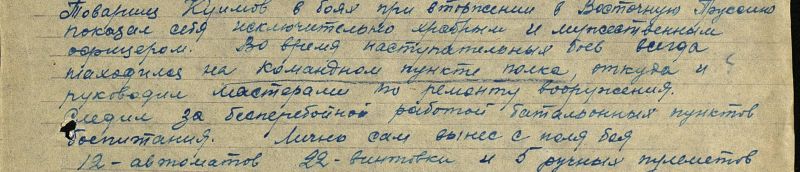 Товарищ Куимов в боях при вторжении в Восточную Пруссию
показал себя исключительно храбрым и мужественным
офицером. Во время наступательных боев всегда
находился на командном пункте полка, откуда и
руководил мастерами по ремонту вооружения.
Следил за бесперебойной работой батальонных пунктов
боепитания. Лично сам вынес с поля боя
12-автоматов 22-винтовки и 5 ручных пулеметов